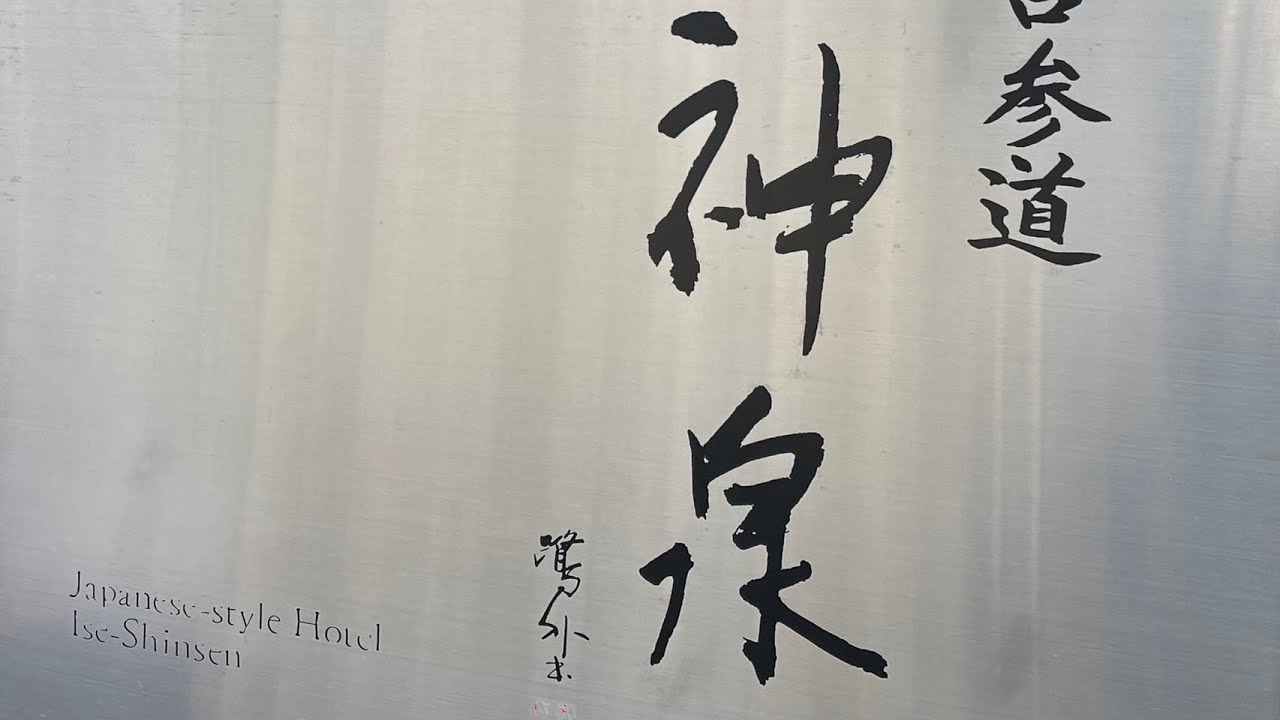 宮参道
神泉
Japanese-style Hotel
Ise-Shinsen